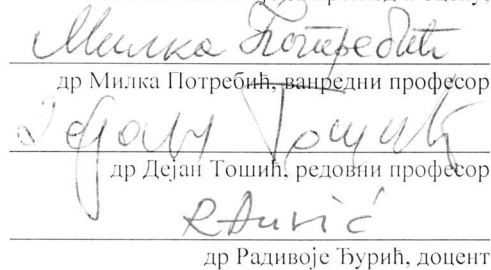 Милка Потребић
др Милка Потребић, ванредни професор
Дејан Тошић
др Дејан Тошић, редовни професор
др Радивоје Ђурић, доцент